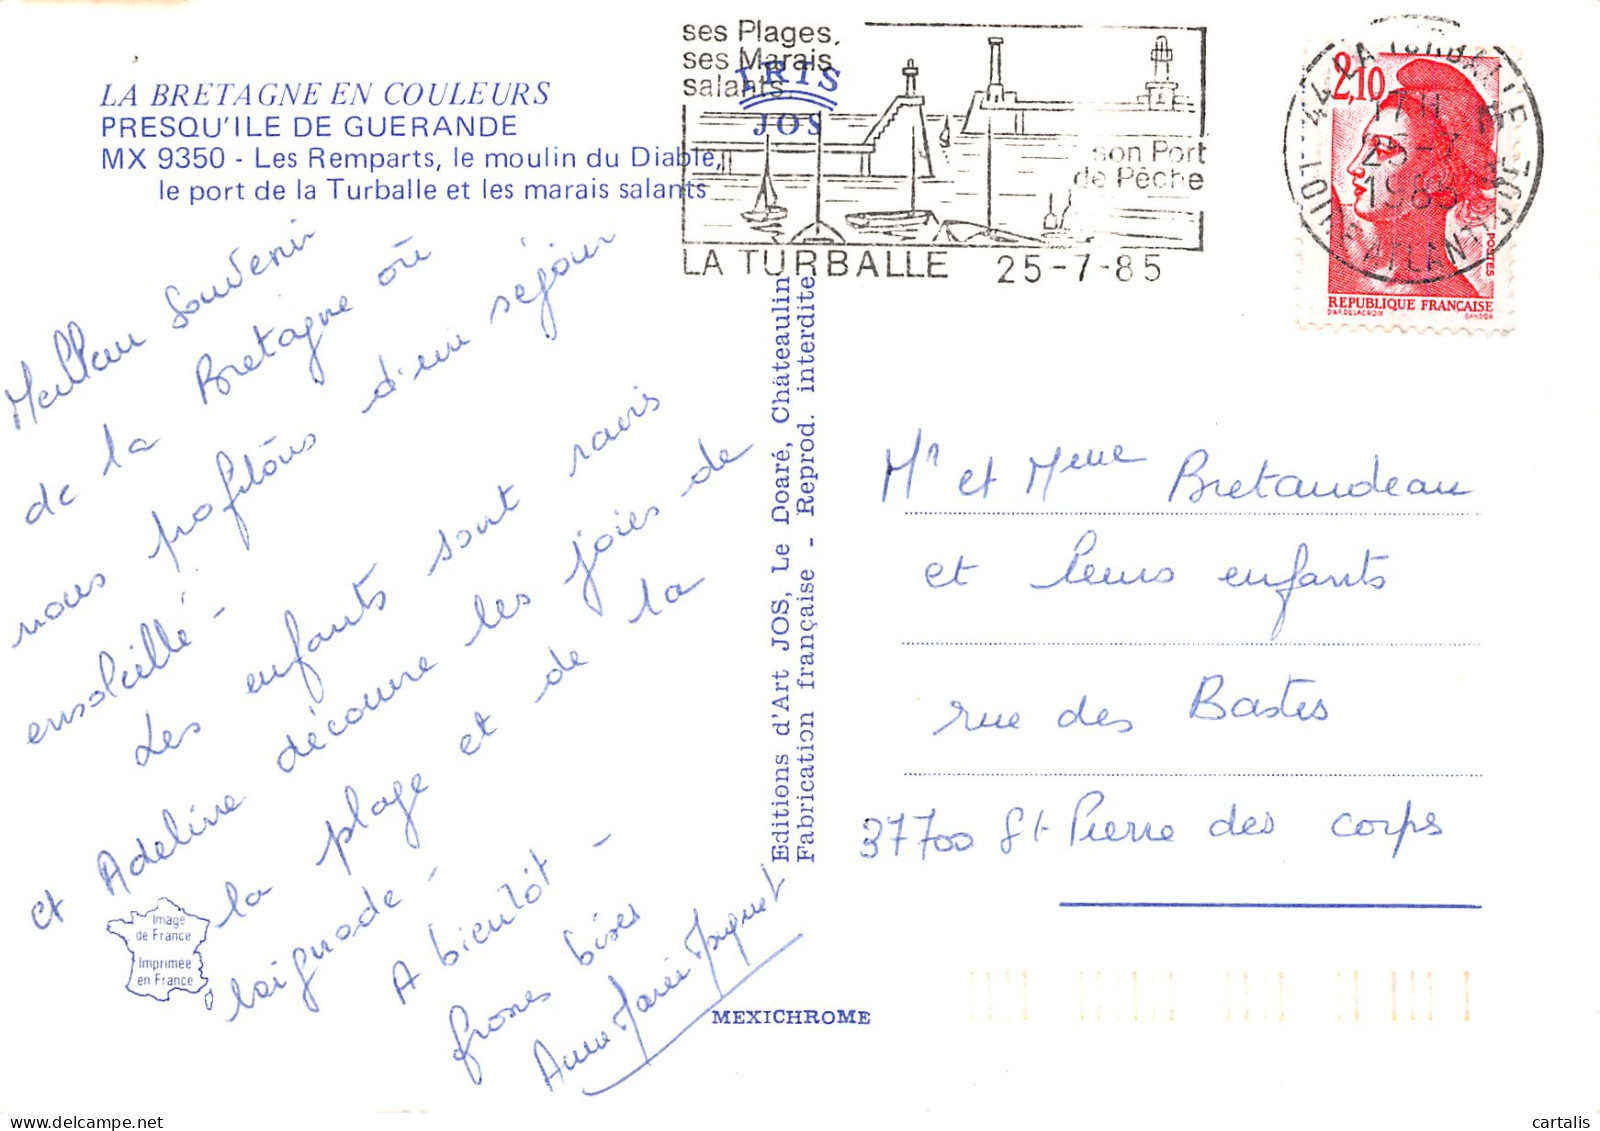 LA BRETAGNE EN COULEURS
PRESQU'ILE DE GUERANDE
MX 9350 - Les Remparts, le moulin du Diable,
le port de la Turballe et les marais salants
ses Plages,
ses Marais
salants
IRIS
JOS
son Port
de Pêche
LA TURBALLE 25-7-85
44 LA TURBALLE
17 H
25-7
1985
LOIRE ATLANTIQUE
2,10
POSTES
REPUBLIQUE FRANÇAISE
D'AP. DELACROIX GANDON
Meilleur Souvenir
de la Bretagne où
nous profitons d'un séjour
ensoleillé -
Les enfants sont ravis
et Adeline découvre les joies de
la plage et de la
baignade -
A bientôt -
Grosses bises
Anne Marie
Image
de France
Imprimée
en France
Editions d'Art JOS, Le Doaré, Châteaulin
Fabrication française - Reprod. interdite
MEXICHROME
Mr et Mme Bretaudeau
et leurs enfants
rue des Bastes
37700 St Pierre des corps
cartalis